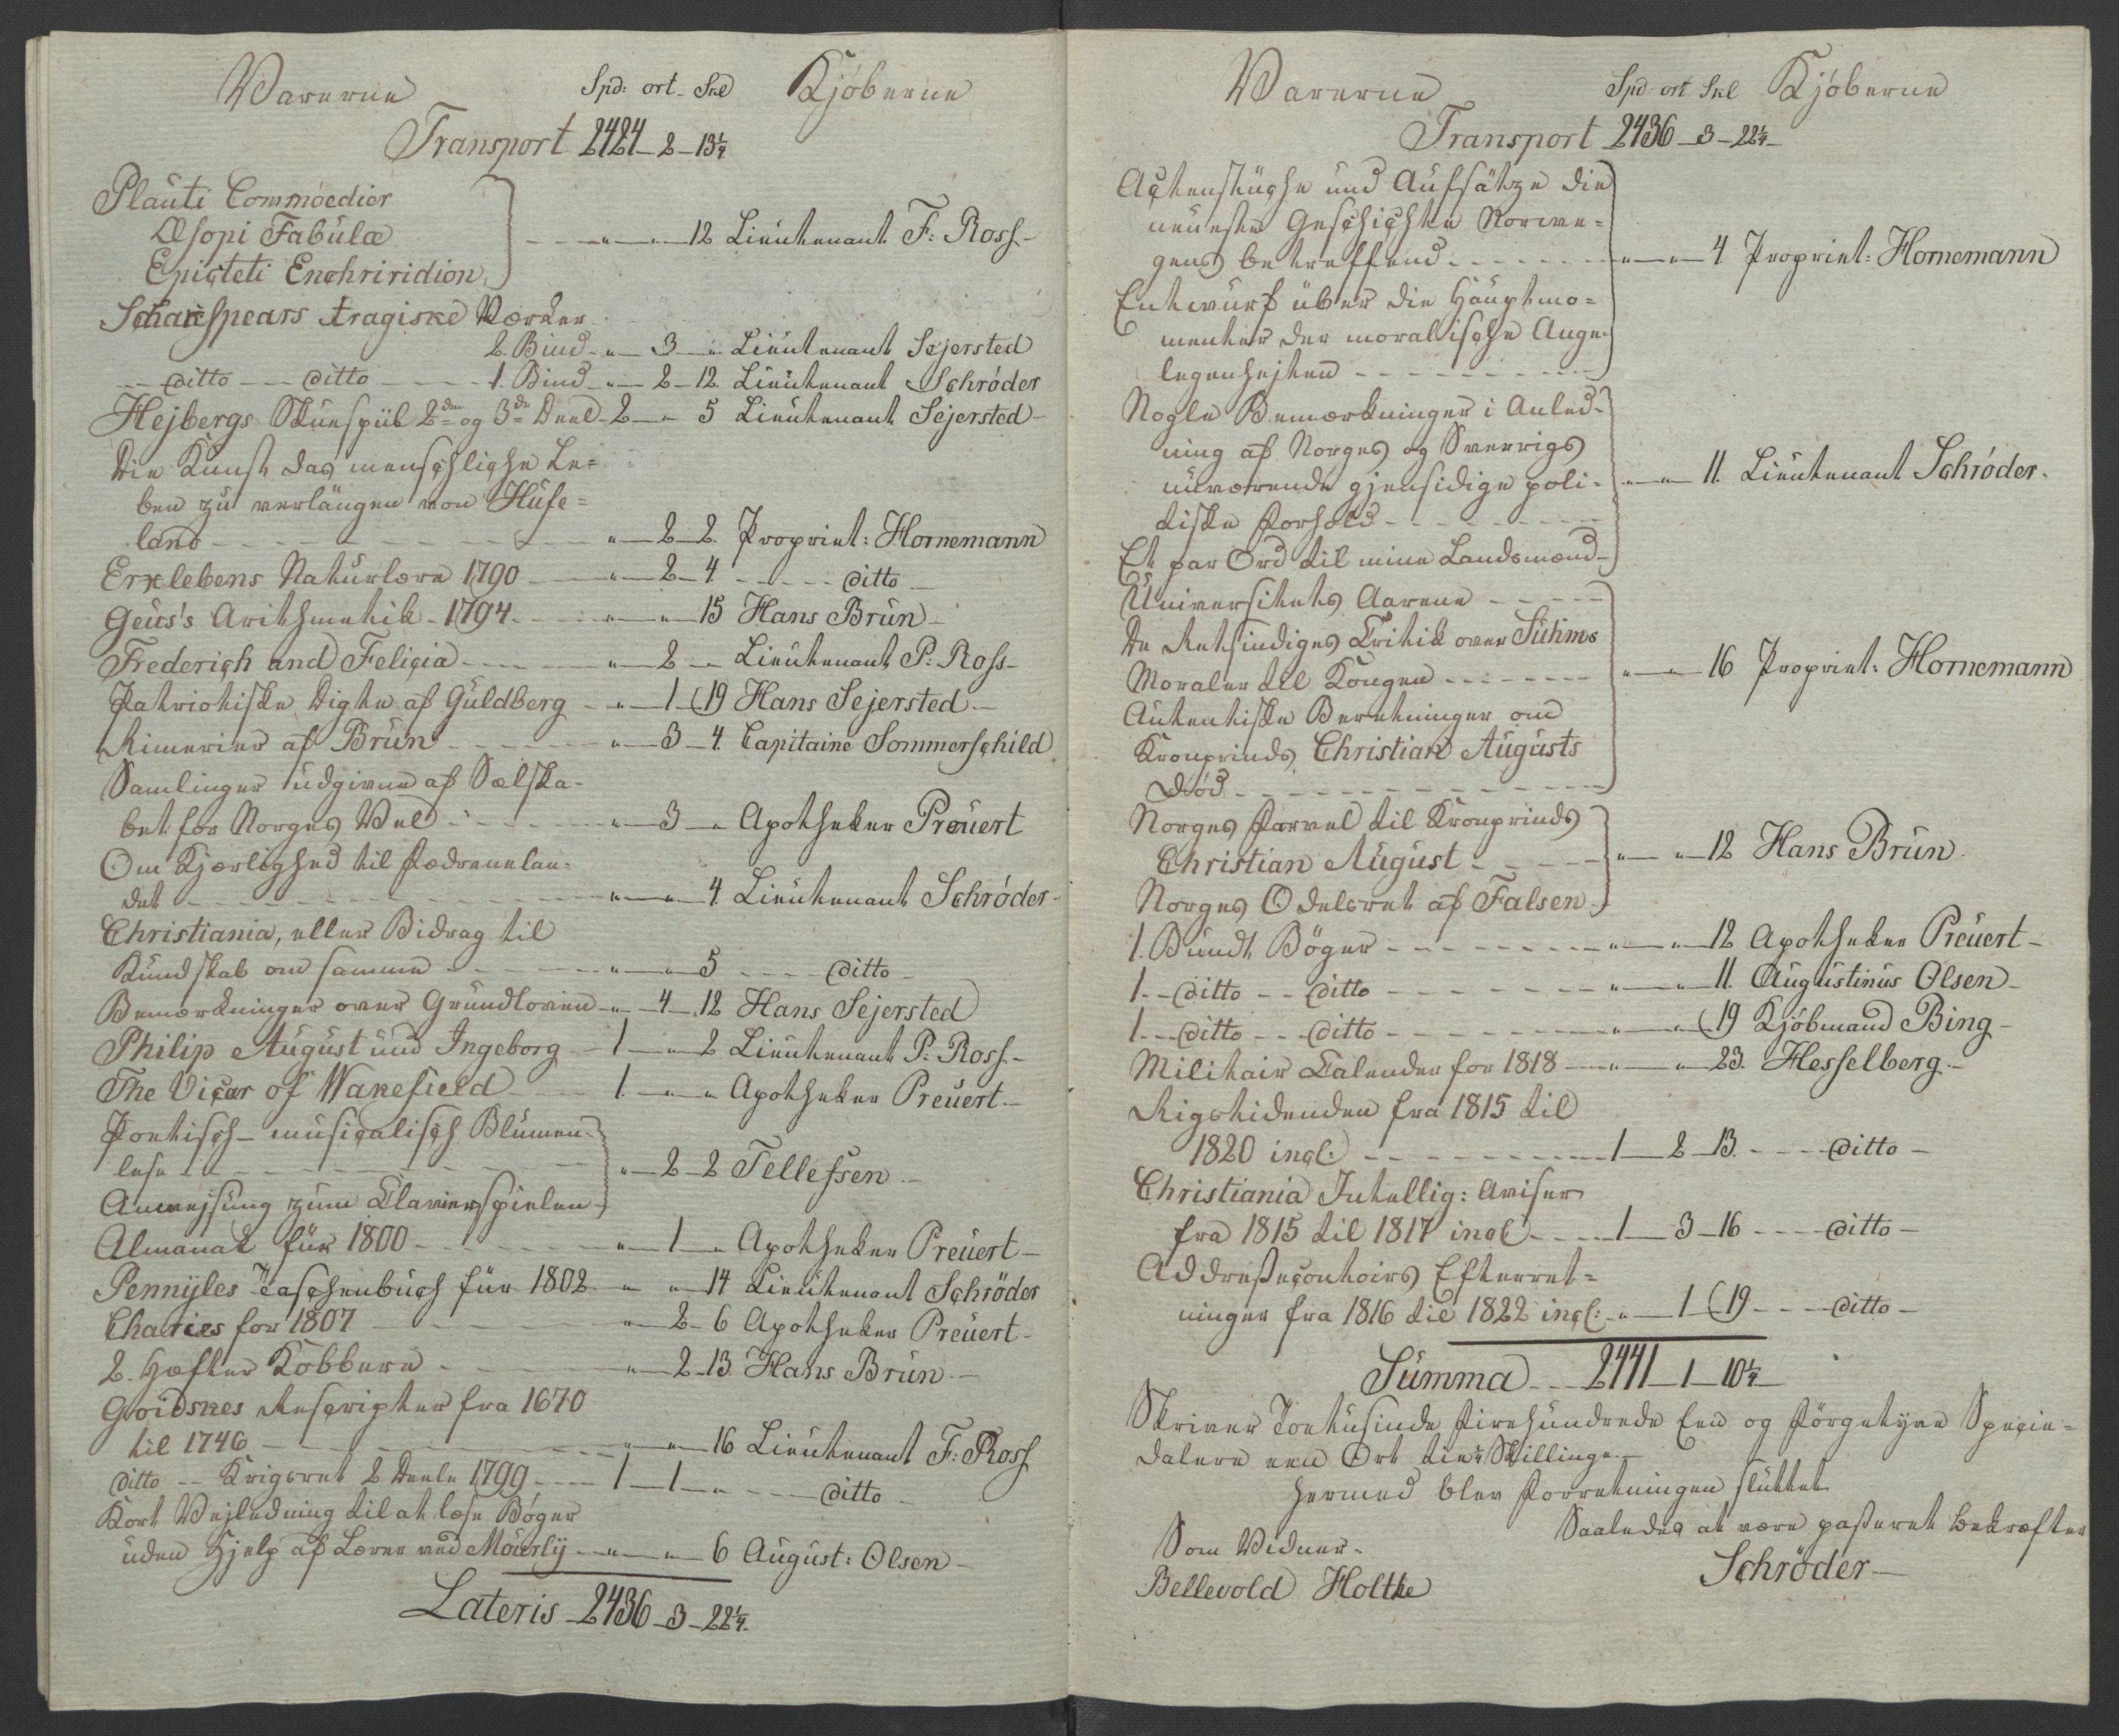 Varerne Spd: ort. Skl Kjøberne
Transport 2424 - 2 - 13¼
Plauti Commoedier
Æsopi Fabulæ - - - " - " - 12 Lieutenant F: Ross -
Epicteti Enchriridion
Schakspears tragiske Værker
2. Bind - " - 3 - " Lieutenant Sejersted
- ditto - - ditto - - - 1. Bind - " - 2 - 12. Lieutenant Schrøder
Hejbergs Skuespiil 2den og 3de Deel - 2 - " 5 Lieutenant Sejersted -
Die Kunst das menschliche Le=
ben zu verlängen von Hufe=
land - - - - " - 2 - 2. Propriet: Hornemann
Erxlebens Naturlære 1790 - - " - 2 - 4. - - - ditto -
Geus's Arithmetik - 1794. - - " - " - 15 Hans Brun -
Frederich and Felicia - - - " - 2 - " Lieutenant P: Ross -
Patriotiske Digte af Guldberg - " - 1 - (19 Hans Sejersted -
Rimerier af Brun - - - " - 3 - 4. Capitaine Sommerschild
Samlinger udgivne af Selska-
bet for Norges Vel - - - " - 3 - " Apotheker Preuert
Om Kjærlighed til Fædrenelan=
det - - - - " - " - 4. Lieutenant Schrøder -
Christiania, eller Bidrag til
Kundskab om samme - - - " - " - 5 - - - ditto -
Bemærkninger over Grundloven - " - 4 - 12 Hans Sejersted
Philip August und Ingeborg - 1 - " - 2 Lieutenant P: Ross. -
The Vicar of Wakefield - - 1. - " - " Apotheker Preuert. -
Poetisch - musicalisch Blumen=
lese - - - - " - 2 - 2 Tellefsen -
Anwejsung zum Clavierspielen -
Almanak für 1800 - - - " - 1 - " Apotheker Preuert -
Pennyles Taschenbuch für 1802 - " - " - 14 Lieutenant Schröder
Charies for 1807 - - - " - 2 - 6 Apotheker Preuert -
2. Hæfter Kobbere - - - " - 2 - 13. Hans Brun. -
Goidskes Rescripter fra 1670
til 1746 - - - - " - " - 16 Lieutenant F: Ross
ditto - - Krigsret 2 Deele 1799 - - 1 - 1 - " - - - ditto -
Kort Vejledning til at læse Bøger
uden Hjelp af Lærer ved Mourly - " - " - 6 August: Olsen -
Lateris - 2436 - 3 - 22¼.
Varerne Spd: ort Skl Kjøberne
Transport 2436 - 3 - 22¼ -
Actenstüche und Aufsätze die
neueste Geschichte Norwe=
gens betreffend - - - " - " - 4 Propriet: Hornemann
Entwurf über die Hauptmo=
menter der moralische Ange=
legenhejten - - - -
Nogle Bemærkninger i Anled=
ning af Norges og Sverrigs
nuværende gjensidige poli= - " - " - 11. Lieutenant Schrøder.
tiske Forhold - - - -
Et par Ord til mine Landsmænd -
Universitets Aarene - - -
De Retsindiges Critik over Suhms
Moraler til Kongen - - - " - " - 16 Propriet: Hornemann
Autentiske Beretninger om
Kronprinds Christian Augusts
Død - - - -
Norges Farvel til Kronprinds
Christian August - - - " - " - 12 Hans Brun.
Norges Odelsret af Falsen -
1. Bundt Bøger - - - " - " - 12 Apotheker Preuert -
1. - ditto - - ditto - - - " - " - 11. Augustinus Olsen -
1. - ditto - - ditto - - - " - " - (19 Kjøbmand Bing -
Militair Calender for 1818 - " - " - 23. Hesselberg. -
Rigstidenden fra 1815 til
1820 incl: - - - 1 - 2 - 13. - - - ditto -
Christiania Intellig: Aviser
fra 1815 til 1817 incl - - - 1 - 3 - 16 - - - ditto -
Addresseçontoirs Efterret=
ninger fra 1816 til 1822 incl: - " - 1 (19 - - - ditto -
Summa - - 2441 - 1 - 10¼ -
Skriver Toetusinde Firehundrede Een og Førgetyve Specie=
dalere een Ort tie¼ Skillinge. -
Hermed blev Forretningen sluttet.
Saaledes at være passeret bekræfter
Som Vidner. -
Schrøder -
Bellevold Holthe